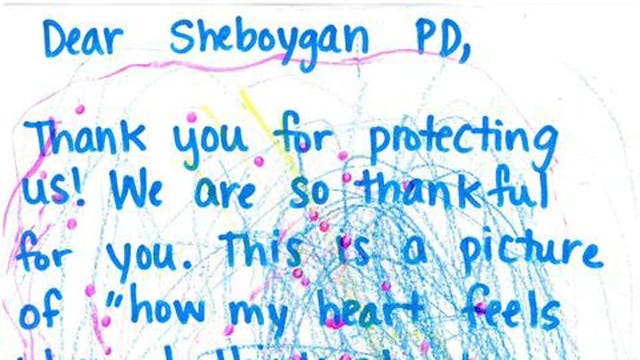 Dear Sheboygan PD,
Thank you for protecting
us! We are so thankful
for you. This is a picture
of "how my heart feels